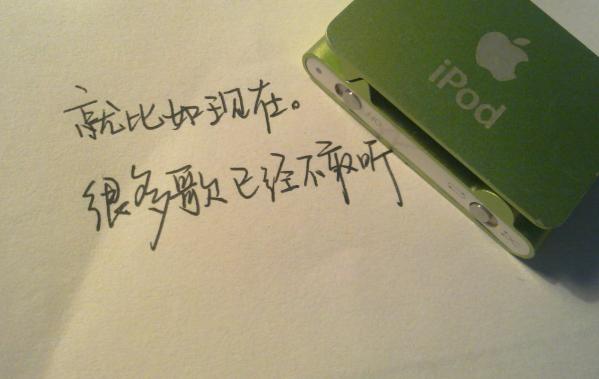 就比如现在。
很多歌已经不敢听
iPod